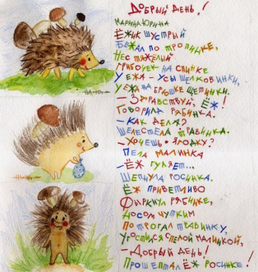 Добрый день!
Карина Юрина
Ёжик шустрый
Бежал по тропинке,
Нёс тяжёлый
Грибочек - на спинке
У ежа - усы щелковинки,
У ежа на брюшке щетинки.
- Здравствуй, Ёж!
Говорила рябинка.
- Как дела?
Шелестела травинка.
- Хочешь ягодку?
Пела малинка
- Ёж гуляет...
Шепнула росинка.
Ёж приветливо
Фыркнул рябинке,
Носом чутким
Потрогал травинку,
Угостился спелой малинкой,
- Добрый день!
Прошептал Ёж росинке!